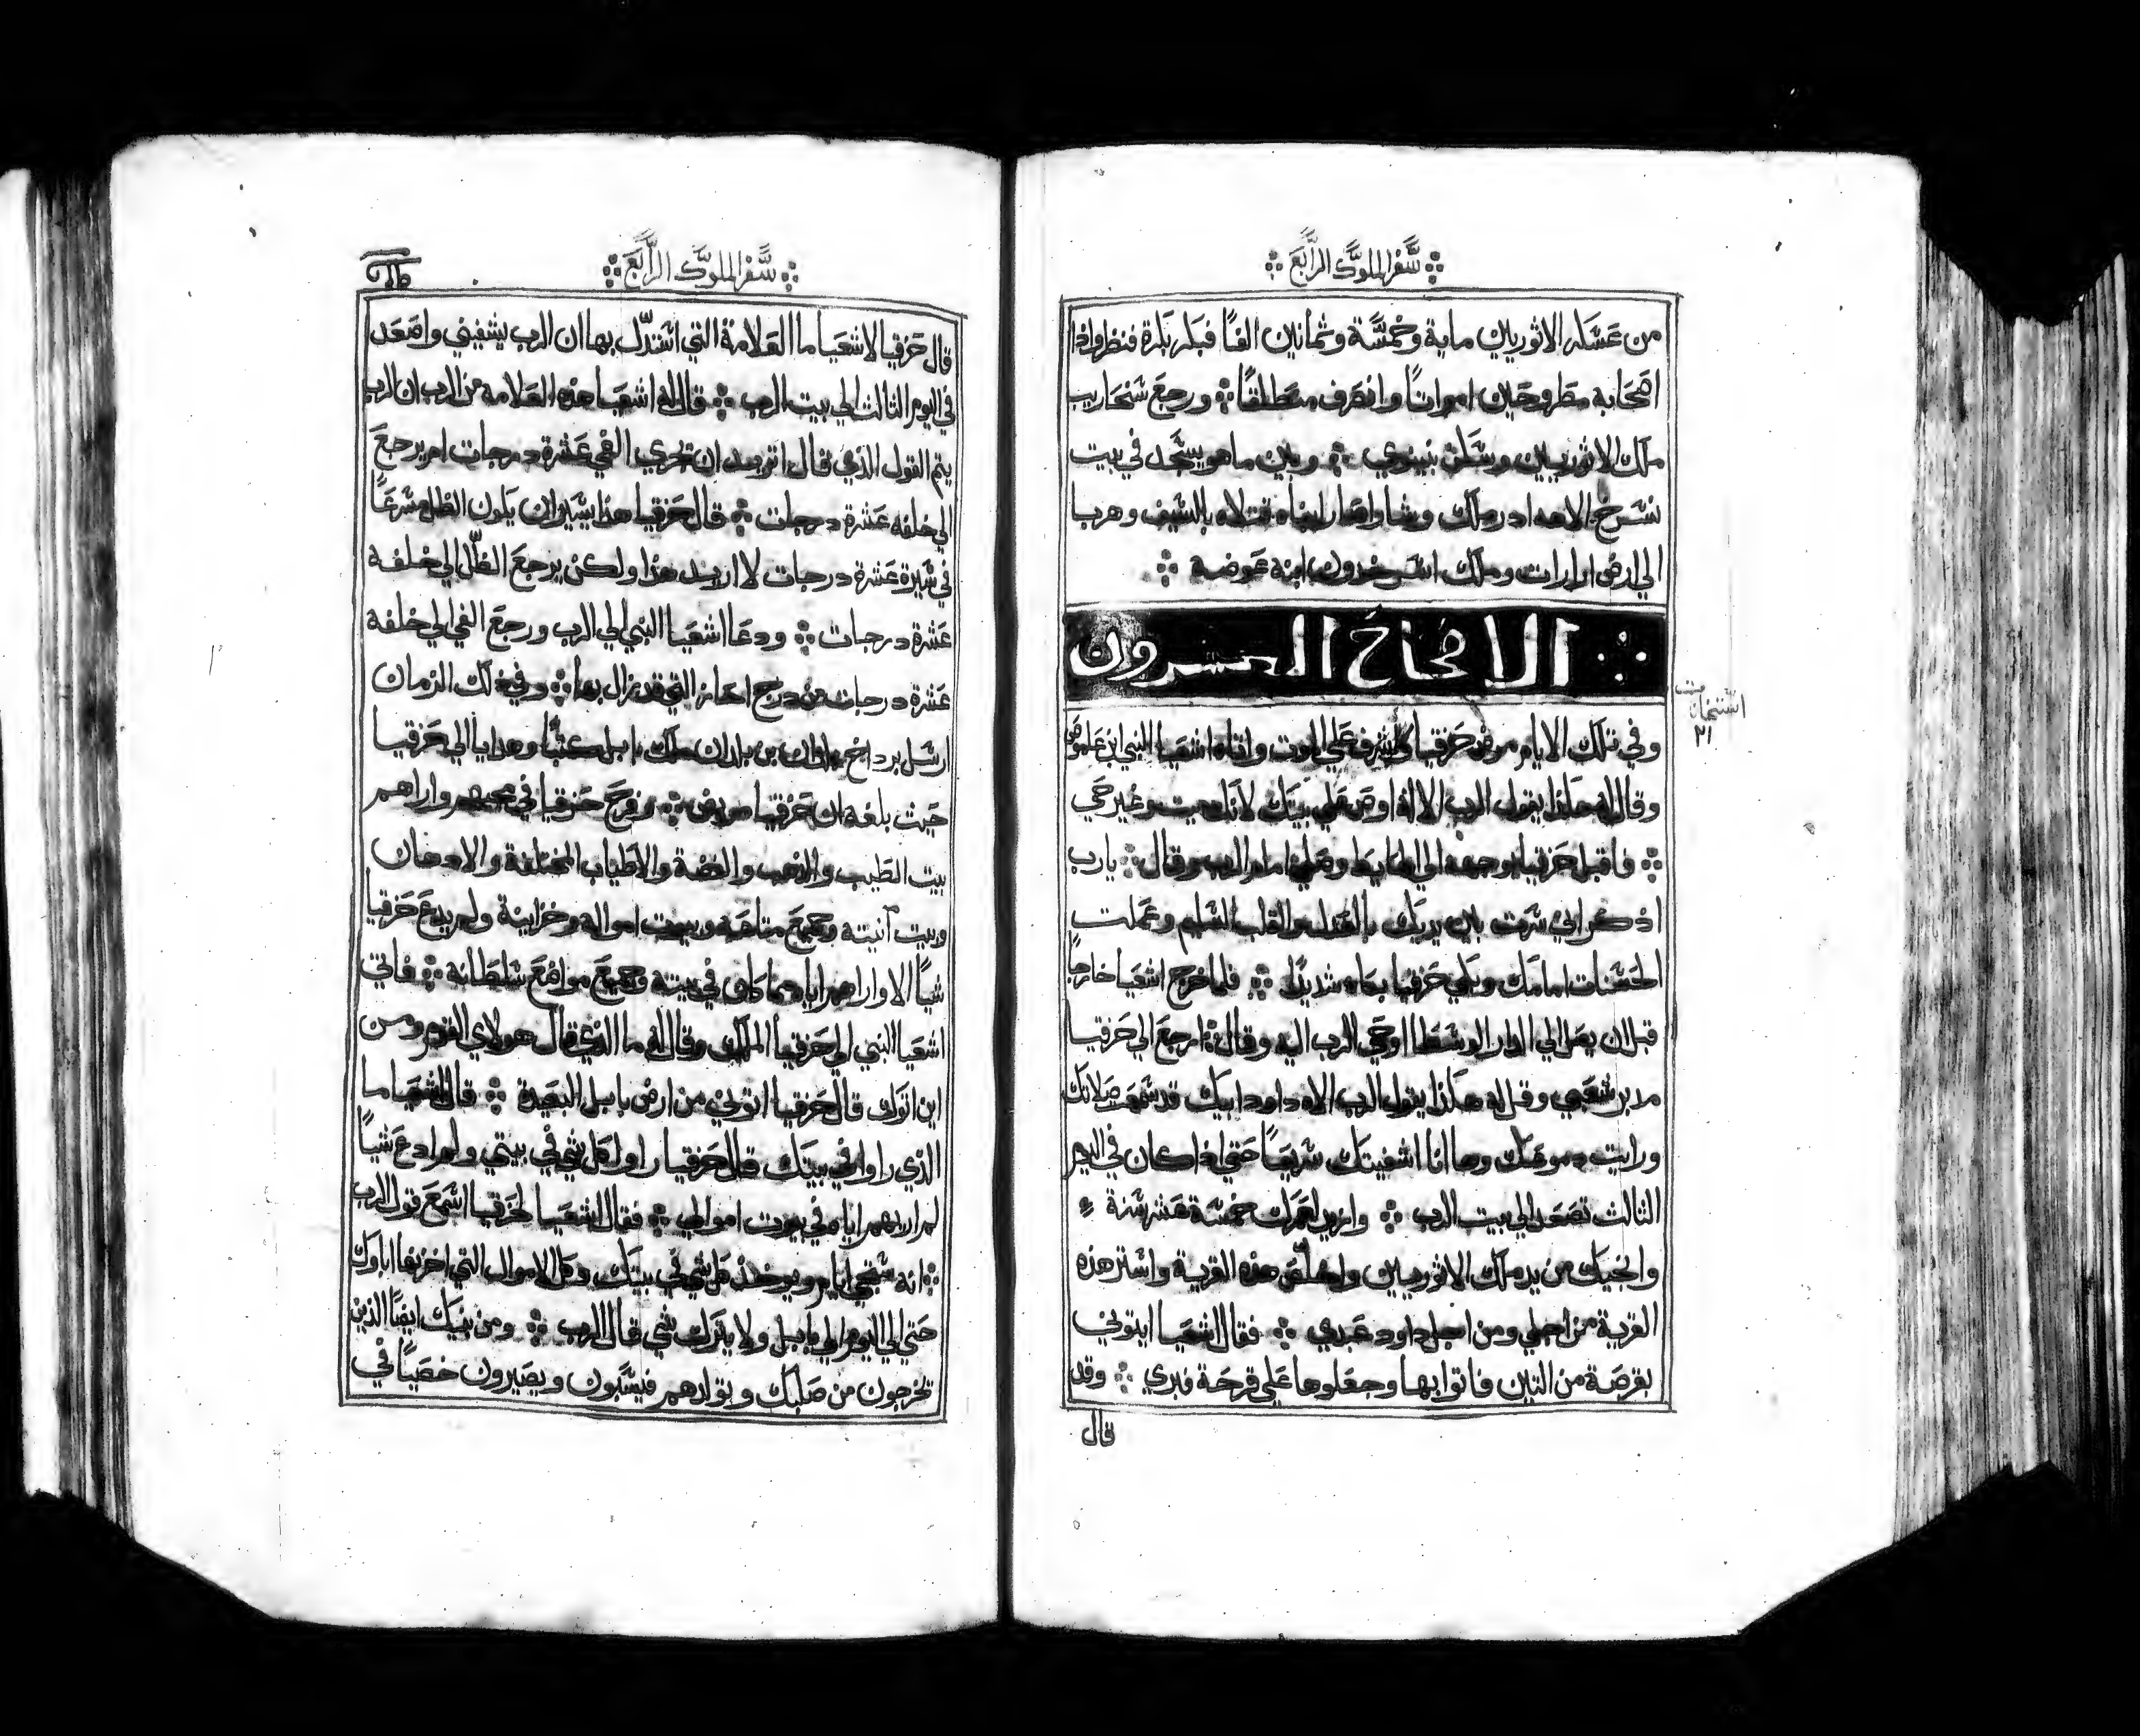 سفر الملوك الرابع
من عسكر الاثوريين ماية وخمسة وثمانين الفًا فبكر بكرة فنظر واذا
اصحابه مطروحين امواتًا وانصرف منطلقًا ورجع سنحاريب
ملك الاثوريين وسكن بنينوي وبين ما هو يسجد في بيت
نسرخ الاهه ادرملك وشاراصار ابناه قتلاه بالسيف وهربا
الي ارض ارارات وملك اسرحدون ابنه عوضه
الاصحاح العسرون
وفي تلك الايام مرض حزقيا واشرف علي الموت واتاه اشعيا النبي ابن عاموص
وقال له هكذا يقول الرب الاله اوص علي بيتك لانك ميت وغير حي
فاقبل حزقيا بوجهه الي الحايط وصلي امام الرب وقال يا رب
اذكر اني سرت بين يديك بالعدل والقلب السليم وعملت
الحسنات امامك وبكي حزقيا بكاء شديدًا فلما خرج اشعيا خارجًا
قبل ان يصل الي الدار الوسطا اوحي الرب اليه وقال ارجع الي حزقيا
مدبر شعبي وقل له هكذا يقول الرب الاه داود ابيك قد سمعت صلاتك
ورايت دموعك وها انا اشفيتك سريعًا حتي اذا كان في اليوم
الثالث تصعد الي بيت الرب وازيد عمرك خمسة عشر سنة
وانجيك من يد ملك الاثوريين واخلص هذه القرية واستر هذه
القرية من اجلي ومن اجل داود عبدي فقال اشعيا ايتوني
بقرصة من التين فاتوا بها وجعلوها علي قرحة فبري وقد
قال
اصحاح ٢١
سفر الملوك الرابع
قال حزقيا لاشعيا ما العلامة التي استدل بها ان الرب يشفيني واصعد
في اليوم الثالث الي بيت الرب قال له اشعيا هذه العلامه من الرب ان الرب
يتم القول الذي قال اتريد ان تجري الفي عشرة درجات ام يرجع
الي خلفه عشرة درجات قال حزقيا هذا يسير ان يكون الظل مسرعًا
في سيرة عشرة درجات لا اريد هذا ولكن يرجع الظل الي خلفه
عشرة درجات ودعا اشعيا النبي الي الرب ورجع الفي الي خلفه
عشرة درجات من درج احاز التي قد نزال بها وفي ذلك الزمان
ارسل برداخ بلدان بن بلدان ملك بابل كتبًا وهدايا الي حزقيا
حيث بلغه ان حزقيا مريض وفرح حزقيا في مجيهم واراهم
بيت الطيب والذهب والفضة والاطياب المختلفة والادهان
وبيت آنيته وجميع متاعه وبيت امواله وخزاينة ولم يدع حزقيا
شيًا الا واراهم اياه مما كان في بيته وجميع مواضع سلطانه فاتي
اشعيا النبي الي حزقيا الملك وقال له ما الذي قال هولاي القوم ومن
اين اتوك قال حزقيا اتوني من ارض بابل البعيدة قال اشعيا ما
الذي راوا في بيتك قال حزقيا راوا كل شي في بيتي ولم ادع شيًا
لم اريهم اياه في بيوت اموالي فقال اشعيا لحزقيا اسمع قول الرب
انه ستجي ايام ويوخذ كل شي في بيتك وكل الاموال التي اخزنها اباوك
حتي الي اليوم الي بابل ولا يترك شي قال الرب ومن بنيك ايضًا الذين
تخرجون من صلبك وتولدهم فيسبون ويصيرون خصيًا في